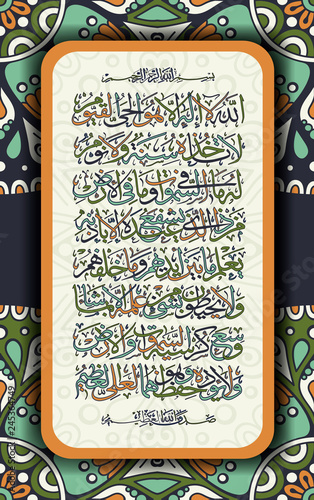 بسم الله الرحمن الرحيم
الله لا إله إلا هو الحي القيوم
لا تأخذه سنة ولا نوم
له ما في السموت وما في الأرض
من ذا الذي يشفع عنده إلا بإذنه
يعلم ما بين أيديهم وما خلفهم
ولا يحيطون بشيء من علمه إلا بما شاء
وسع كرسيه السموت والأرض
ولا يؤده حفظهما وهو العلي العظيم
صدق الله العظيم